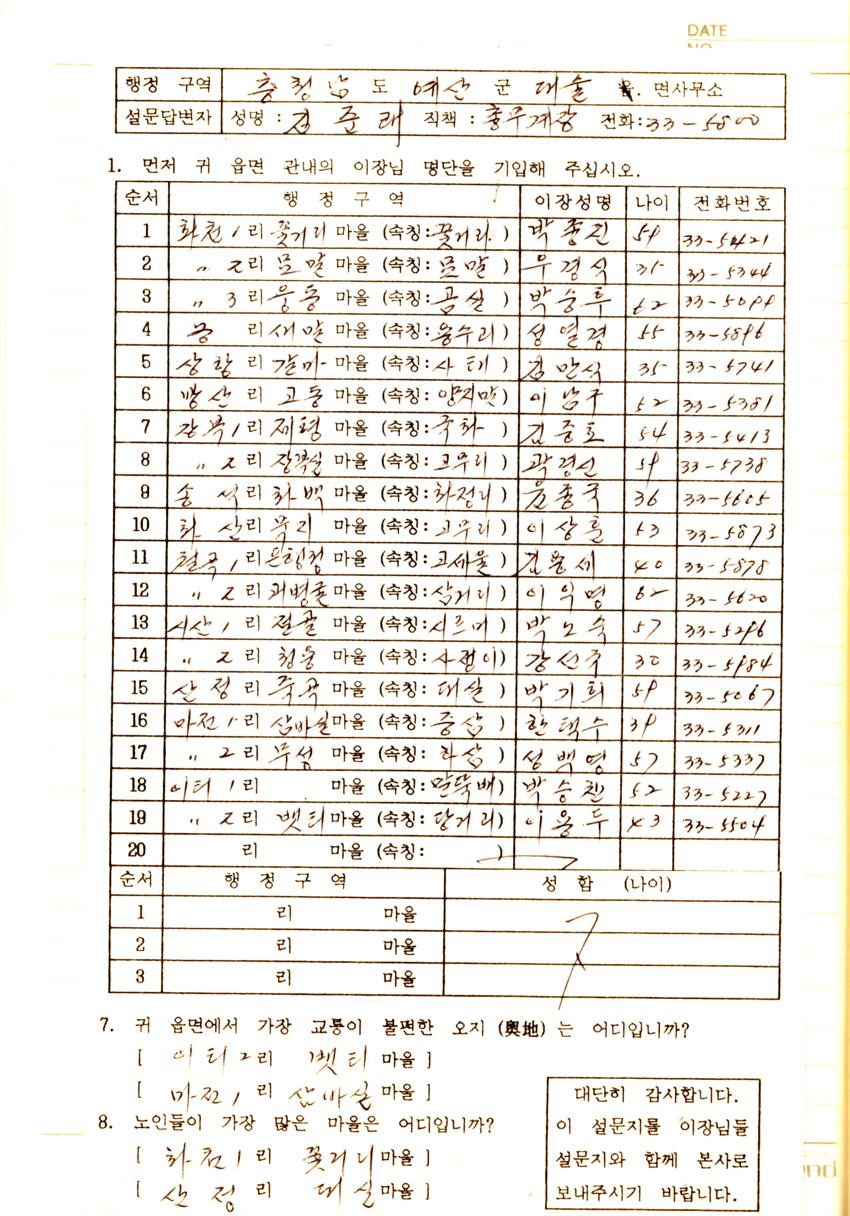 DATE
NO
행정 구역 충청남도 예산군 대술 면사무소
설문답변자 성명 : 김준래 직책 : 총무계장 전화:33-5800
1. 먼저 귀 읍면 관내의 이장님 명단을 기입해 주십시오.
순서 행 정 구 역 이장성명 나이 전화번호
1 화천1리 꽃거리 마을 (속칭:꽃거리) 박종진 59 33-5421
2 〃 2리 문말 마을 (속칭:문말) 우경식 35 33-5344
3 〃 3리 웅동 마을 (속칭:곰실) 박승후 62 33-5099
4 궁 리 새말 마을 (속칭:용수리) 성열경 55 33-5896
5 상항리 갈미 마을 (속칭:사태) 김만식 35 33-5741
6 방산리 고동 마을 (속칭:양지말) 이남구 52 33-5381
7 장복1리 마을 (속칭:국화) 김중호 54 33-5413
8 〃 2리 장복실 마을 (속칭:고무리) 곽경신 59 33-5738
9 송석리 화백 마을 (속칭:화정리) 윤종국 36 33-5605
10 화산리 마을 (속칭:고무리) 이상훈 53 33-5873
11 1리 은행정 마을 (속칭:고세울) 김용세 40 33-5878
12 〃 2리 마을 (속칭:삼거리) 이익명 62 33-5620
13 시산1리 절골 마을 (속칭:시르미) 박노숙 57 33-5296
14 〃 2리 청용 마을 (속칭:사점이) 강선주 30 33-5984
15 산정리 죽곡 마을 (속칭:대실) 박기희 59 33-5067
16 마전1리 삼바실마을 (속칭:중삼) 한택수 39 33-5311
17 〃 2리 무성 마을 (속칭:하삼) 성백영 57 33-5337
18 이티1리 마을 (속칭:말뚝배) 박승진 52 33-5227
19 〃 2리 벳티마을 (속칭:당거리) 이용두 43 33-5504
20 리 마을 (속칭: )
순서 행 정 구 역 성 함 (나이)
1 리 마을
2 리 마을
3 리 마을
7. 귀 읍면에서 가장 교통이 불편한 오지 (奧地) 는 어디입니까?
[ 이티2리 벳티 마을 ]
[ 마전1리 삼바실 마을 ]
8. 노인들이 가장 많은 마을은 어디입니까?
[ 화천1리 꽃거리마을 ]
[ 산정리 대실마을 ]
대단히 감사합니다.
이 설문지를 이장님들
설문지와 함께 본사로
보내주시기 바랍니다.